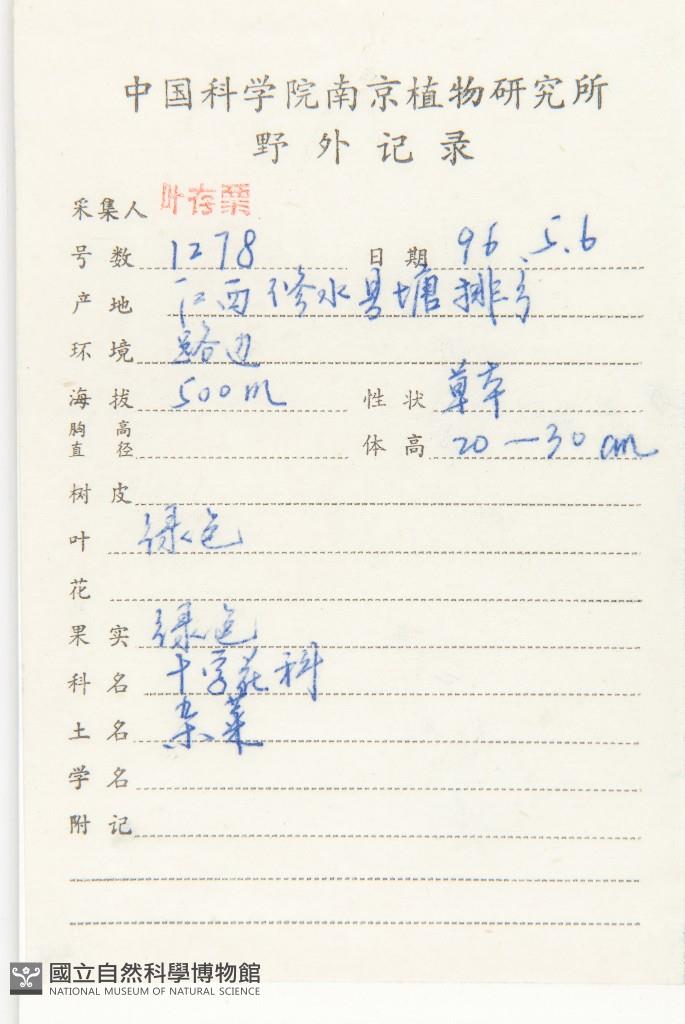 中国科学院南京植物研究所
野外记录
采集人 叶存粟
号数 1278 日期 96.5.6
产地 江西修水县塘排乡
环境 路边
海拔 500m 性状 草本
胸高直径 体高 20—30cm
树皮
叶 绿色
花
果实 绿色
科名 十字花科
土名 菜
学名
附记
國立自然科學博物館
NATIONAL MUSEUM OF NATURAL SCIENCE